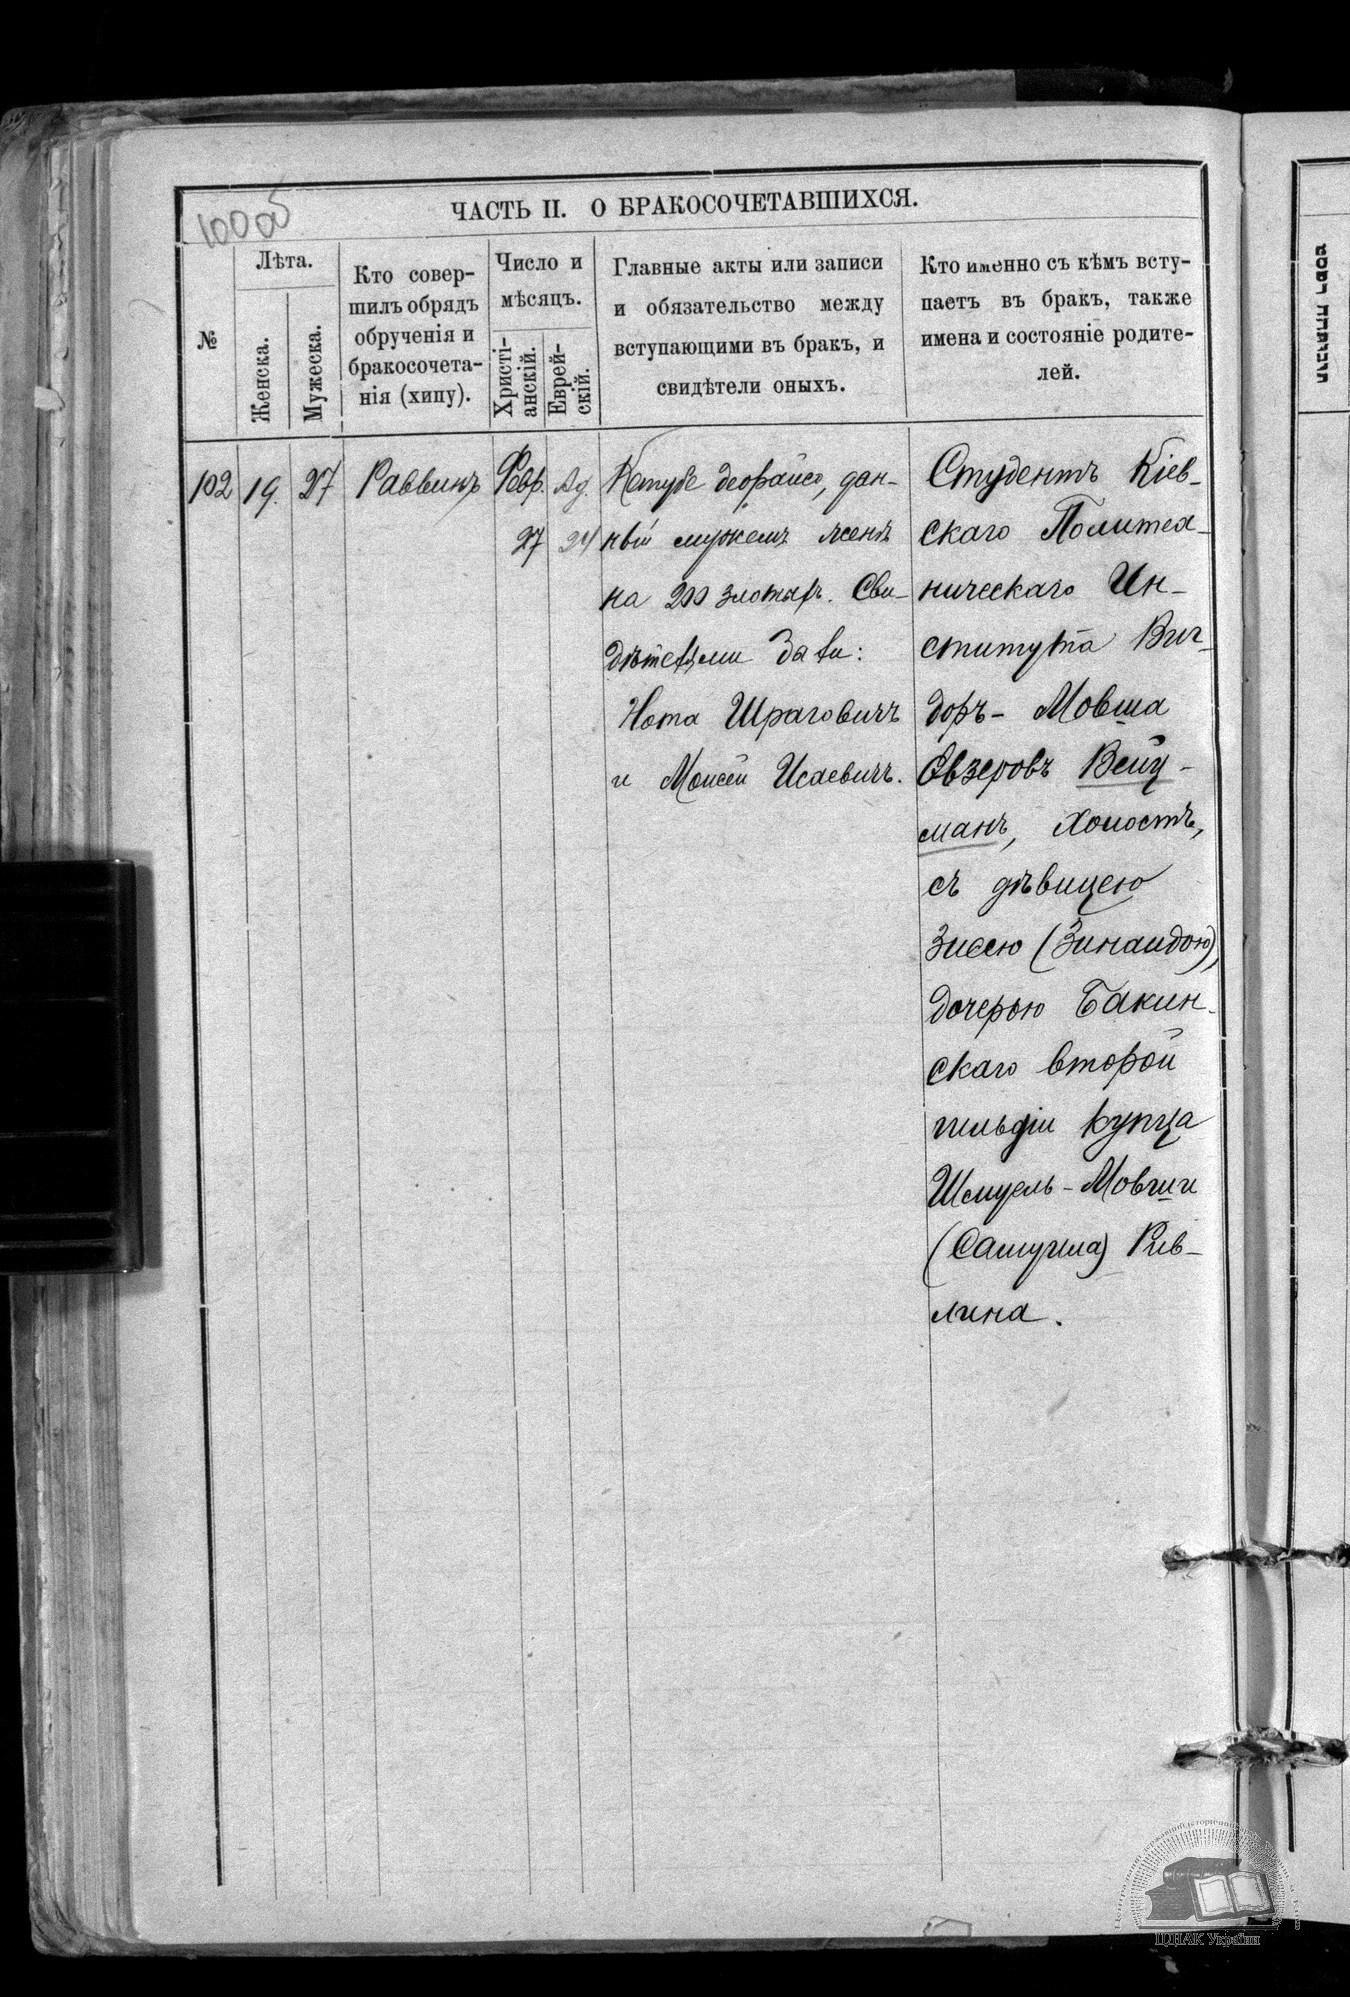 100 об
ЧАСТЬ II. О БРАКОСОЧЕТАВШИХСЯ.
№
Лѣта.
Женска.
Мужеска.
Кто совер-
шилъ обрядъ
обрученія и
бракосочета-
нія (хипу).
Число и
мѣсяцъ.
Христі-
анскій.
Еврей-
скій.
Главные акты или записи
и обязательство между
вступающими въ бракъ, и
свидѣтели оныхъ.
Кто именно съ кѣмъ всту-
паетъ въ бракъ, также
имена и состояніе родите-
лей.
102
19.
27
Раввинъ
Февр.
27
Ад.
24
Кетубе деорайсо, дан-
ный мужемъ женѣ
на 200 злотыхъ. Сви-
дѣтелями были:
Нота Шраговичъ
и Моисей Исаевичъ.
Студентъ Кіев-
скаго Политех-
ническаго Ин-
ститута Виг-
доръ - Мовша
Евзеровъ Вейц-
манъ, холостъ,
съ дѣвицею
Зисею (Зинаидою),
дочерью Бакин-
скаго второй
гильдіи купца
Шмуель - Мовши
(Самуила) Рив-
лина.
ЦДІАК України